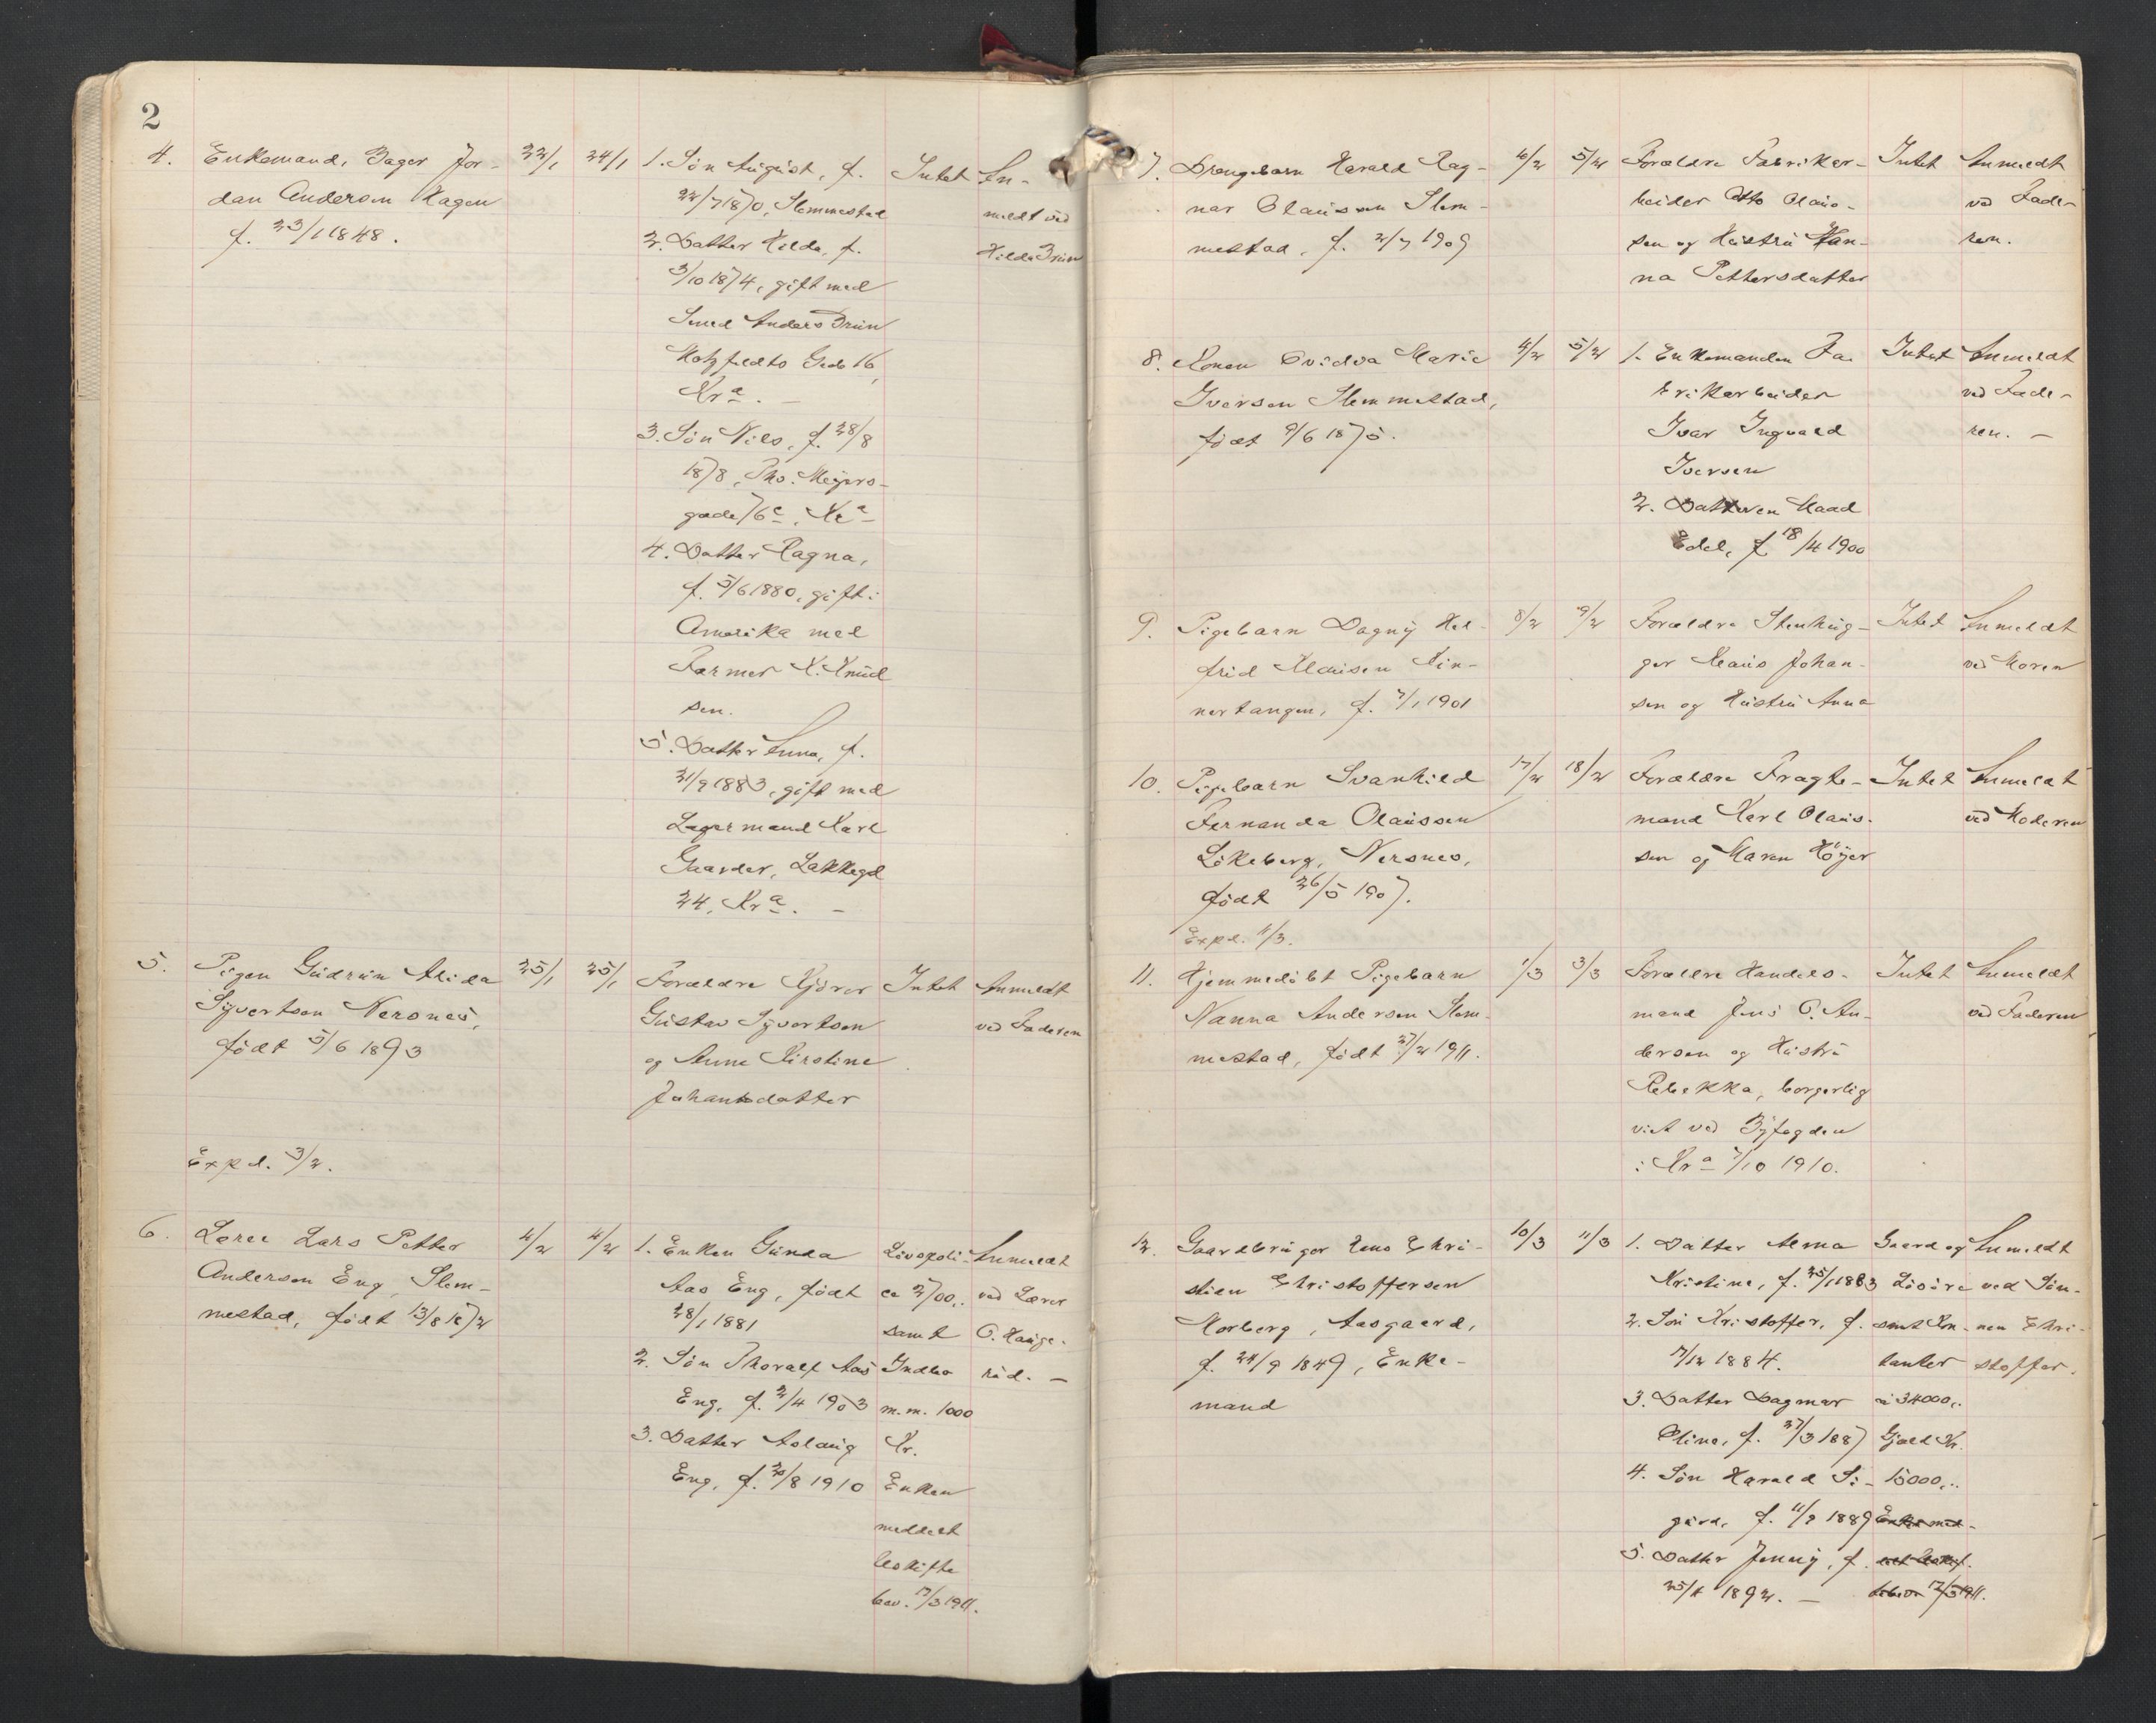 2
4. Enkemand, Bager Jor-
dan Anderson Hagen
f. 23/1 1848.
22/1 24/1
1. Søn August, f.
22/7 1870, Slemmestad
2. Datter Hilda, f.
3/10 1874, gift med
Smed Anders Bruun
Motzfeldts Gade 16,
Kra. –
3. Søn Nils, f. 28/8
1878, Tho. Meyers-
gade 76c, Kra
4. Datter Ragna,
f. 5/6 1880, gift i
Amerika med
Farmer K. Knud
sen.
5. Datter Anna, f.
21/9 1883, gift med
Lagermand Karl
Gaarder, Lakkegd
24, Kra. –
Intet
An-
meldt ved
Hilda Bruun
5. Pigen Gudrun Alida
Syvertsen Nersnes,
født 5/6 1893
Expd. 3/2.
25/1 25/1
Forældre Kjører
Gustav Syvertsen
og Anne Kirstine
Johansdatter
Intet
Anmeldt
ved Faderen
6. Lærer Lars Petter
Anderson Eng, Slem-
mestad, født 13/8 1872
4/2 4/2
1. Enken Gunda
Aas Eng, født
28/1 1881
2. Søn Thoralf Aas
Eng, f. 2/4 1903
3. Datter Aslaug
Eng, f. 20/8 1910
Livspoli-
ce 2700,-
samt
Indbo
m.m. 1000
Kr.
Enken
meddelt
Uskifte
bev. 17/3 1911.
Anmeldt
ved Lærer
O. Hauge-
rud. –
7. Drengebarn Harald Rag-
nar Olaussen Slem-
mestad, f. 2/7 1909
4/2 5/2
Forældre Fabrikar-
beider Otto Olaus-
sen og Hustru Han-
na Pettersdatter
Intet
Anmeldt
ved Fade-
ren.
8. Konen Ovidva Marie
Iversen Slemmestad,
født 9/6 1875.
4/2 5/2
1. Enkemanden Fa-
brikarbeider
Ivar Ingvald
Iversen
2. Datteren Maad
Edel, f. 18/4 1900
Intet
Anmeldt
ved Fade-
ren. –
9. Pigebarn Dagny Hel-
frid Klausen Kin-
nertangen, f. 7/1 1901
8/2 9/2
Forældre Stenhug-
ger Klaus Johan-
sen og Hustru Anna
Intet
Anmeldt
ved Moren
10. Pigebarn Svanhild
Fernanda Olaussen
Løkeberg, Nersnes,
født 26/5 1907.
Expd. 11/3.
17/2 18/2
Forældre Fragte-
mand Karl Olaus-
sen og Maren Høyer
Intet
Anmeldt
ved Moderen
11. Hjemmedøbt Pigebarn
Nanna Andersen Slem-
mestad, født 27/2 1911.
1/3 3/3
Forældre Handels-
mand Jens O. An-
dersen og Hustru
Rebekka, borgerlig
viet ved Byfogden
i Kra 7/10 1910.
Intet
Anmeldt
ved Faderen
12. Gaardbruger Hans Chri-
stian Christoffersen
Morberg, Aasgaard,
f. 24/9 1849, Enke-
mand
10/3 11/3
1. Datter Alma
Kristine, f. 25/1 1883
2. Søn Kristoffer, f.
7/12 1884.
3. Datter Dagmar
Oline, f. 27/3 1887
4. Søn Harald Si-
gurd, f. 11/9 1889
5. Datter Jenny, f.
25/4 1892. –
Gaard og
Løsøre
samt Kon-
tanter
à 34000,-
Gjæld Kr.
15000,-
Enken med-
delt Uskif-
tebev. 17/3 1911.
Anmeldt
ved Søn-
nen Chri-
stoffer.